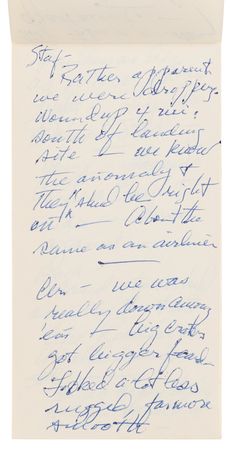 Staf-
Rather apparent
we were dropping.
Wound up 4 mi.
south of landing
site - we know
the anomaly &
they "shud be right
on" - About the
same as an airliner
Cern - we was
really down among
'em - big craters
got bigger fast-
Looked a lot less
rugged, far more
smooth